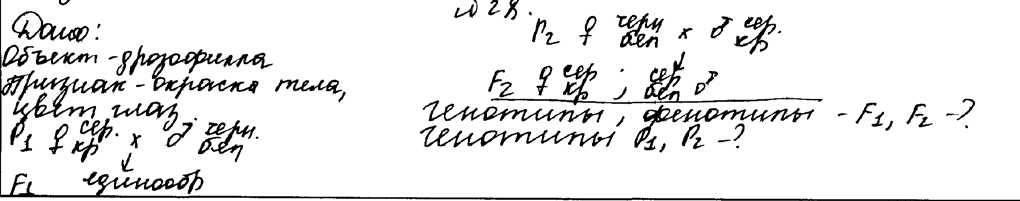 Дано:
Объект - дрозофилла
Признак - окраска тела,
цвет глаз.
P1 ♀ сер. кр x ♂ черн. бел
↓
F1 единообр
№28.
P2 ♀ черн бел x ♂ сер. кр
↓
F2 ♀ сер кр ; сер бел ♂
генотипы, фенотипы - F1, F2 -?
генотипы P1, P2 -?